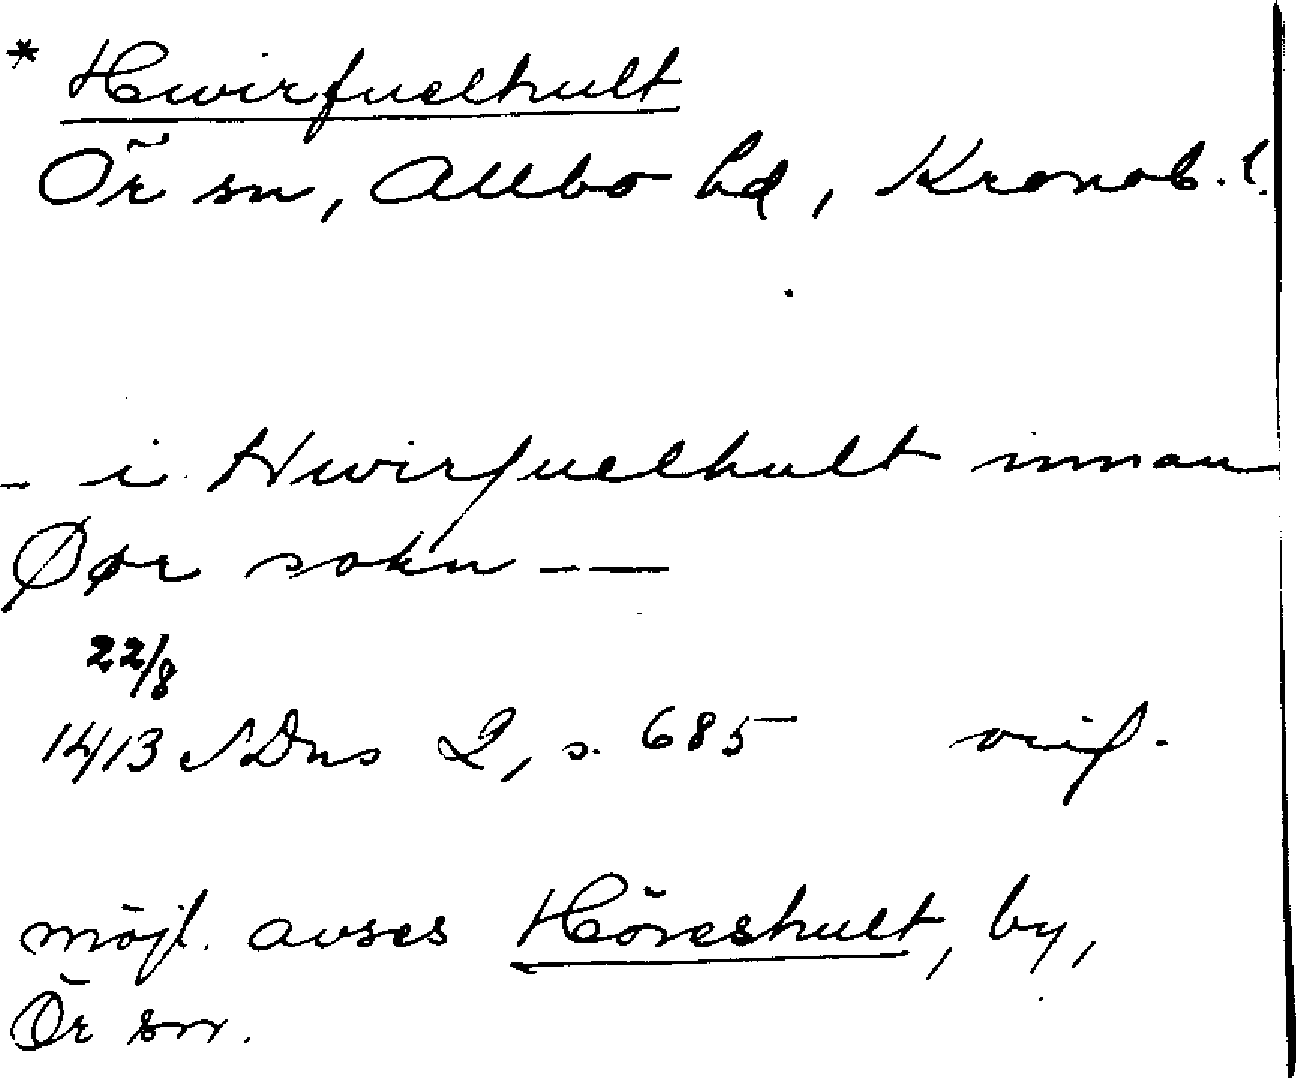 * Hwirfuelhult
Ör sn, Allbo hd, Kronob. l.
- i Hwirfuelhult innan
Øør sokn - —
22/8
1413 SDns 2, s. 685 orig.
möjl. avses Höreshult, by,
Ör sn.